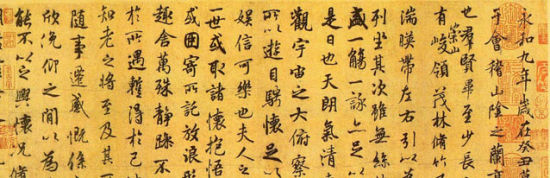 永和九年歲在癸丑暮
于會稽山陰之蘭亭
也群賢畢至少長
有崇山峻領茂林脩竹
湍暎帶左右引以為
列坐其次雖無絲
盛一觴一詠亦足以
是日也天朗氣清
觀宇宙之大俯察
所以遊目騁懷足以
娛信可樂也夫人之
一世或取諸懷抱悟
或因寄所託放浪形
趣舍萬殊靜躁不
於所遇蹔得於己
知老之將至及其
隨事遷感慨係
欣俛仰之閒以為
能不以之興懷況脩